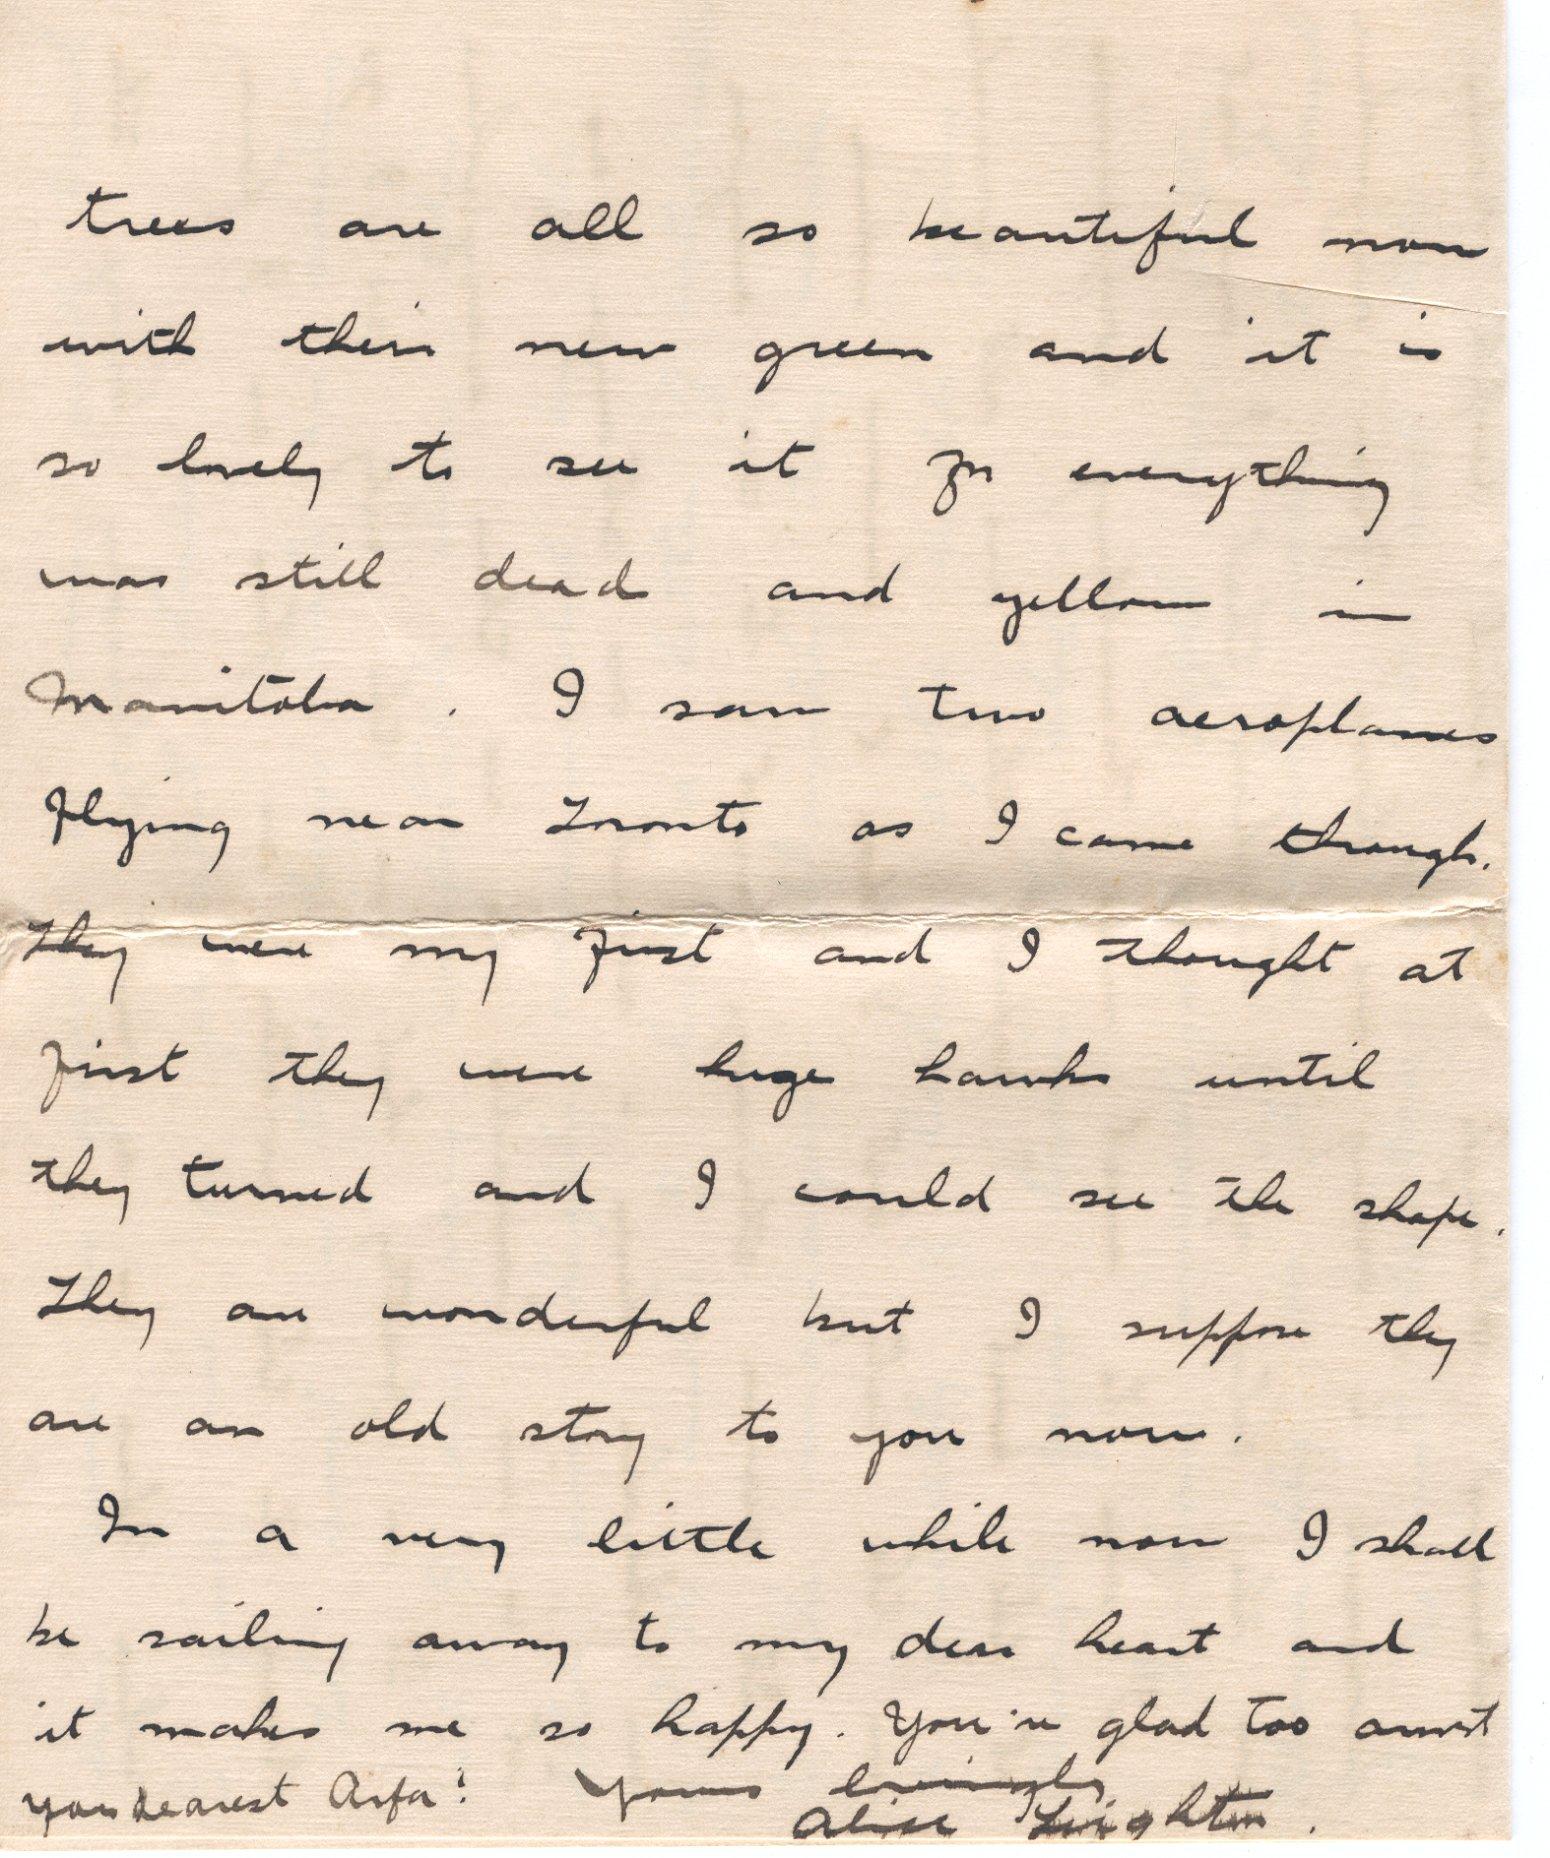 trees are all so beautiful now
with their new green and it is
so lovely to see it for everything
was still dead and yellow in
Manitoba. I saw two aeroplanes
flying near Toronto as I came through.
They were my first and I thought at
first they were huge hawks until
they turned and I could see the shape.
They are wonderful but I suppose they
are an old story to you now.
In a very little while now I shall
be sailing away to my dear heart and
it makes me so happy. You're glad too arn't
you dearest Arfa? Yours lovingly
Alice Leighton.